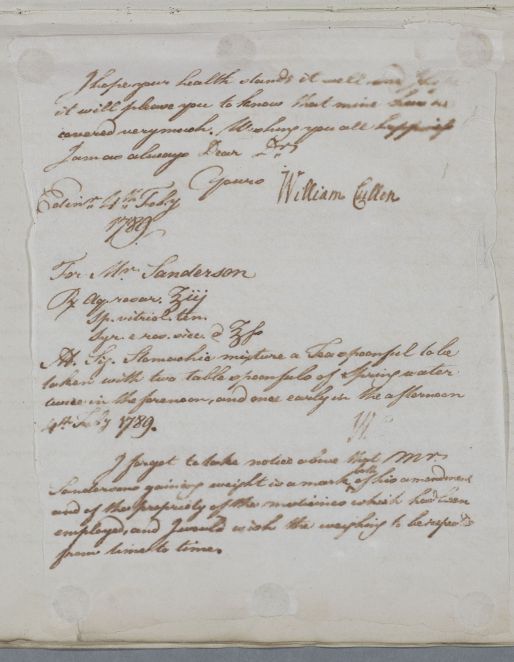 I hope your health stands it well
it will please you to know that mine has re
covered very much. Wishing you all happiness
I am as always Dear Drs
Yours William Cullen
Edinr. 4th. Feby
1789.
For Mr. Sanderson
℞ Aq. rosar. ℥iij
Sp. vitriol. ten.
Syr. e ros. sicc. a ℥ſs
M. Sig. Stomachic mixture a Teaspoonful to be
taken with two tablespoonfuls of Spring water
twice in the forenoon, and once early in the afternoon
4th. Feby 1789.
W.
I forgot to take notice above that Mr
Sandersons gaining weight is a mark both of his amendment
and of the propriety of the medicines which had been
employed, and I would wish the weighing to be repeatd
from time to time.